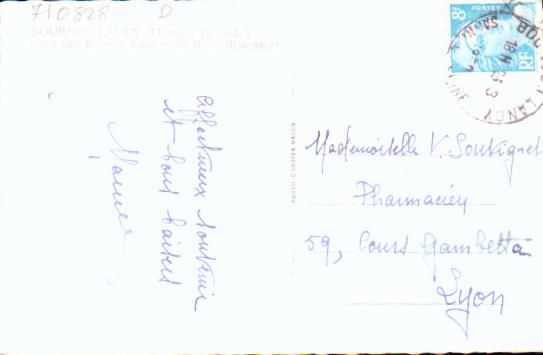 710828 D
BOURBON-LANCY Thermal (S.-et-L.)
Cour des Bains - Bassins de Refroidissement
Affectueux souvenir
et bons baisers
PHOTO COMBIER MACON
8F
POSTES
RF
18H
LANCY
Mademoiselle V. Soutignet
Pharmacien
59, Cours Gambetta
Lyon